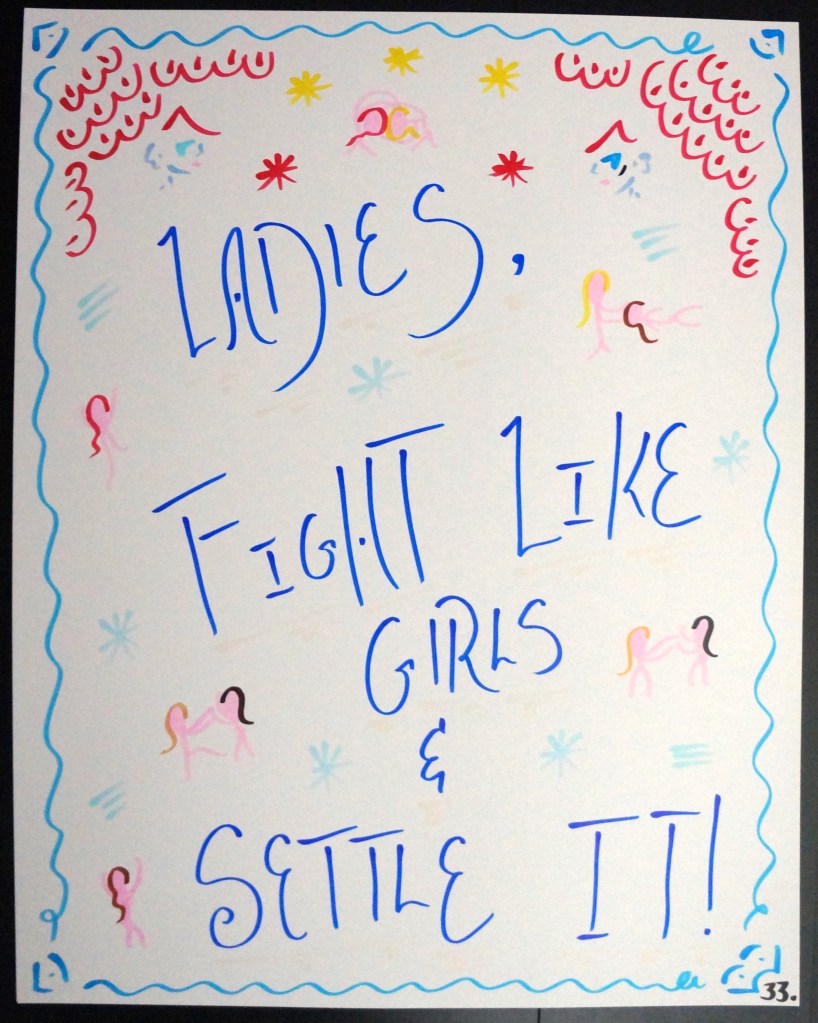 LADIES,
FIGHT LIKE
GIRLS
&
SETTLE IT!
33.